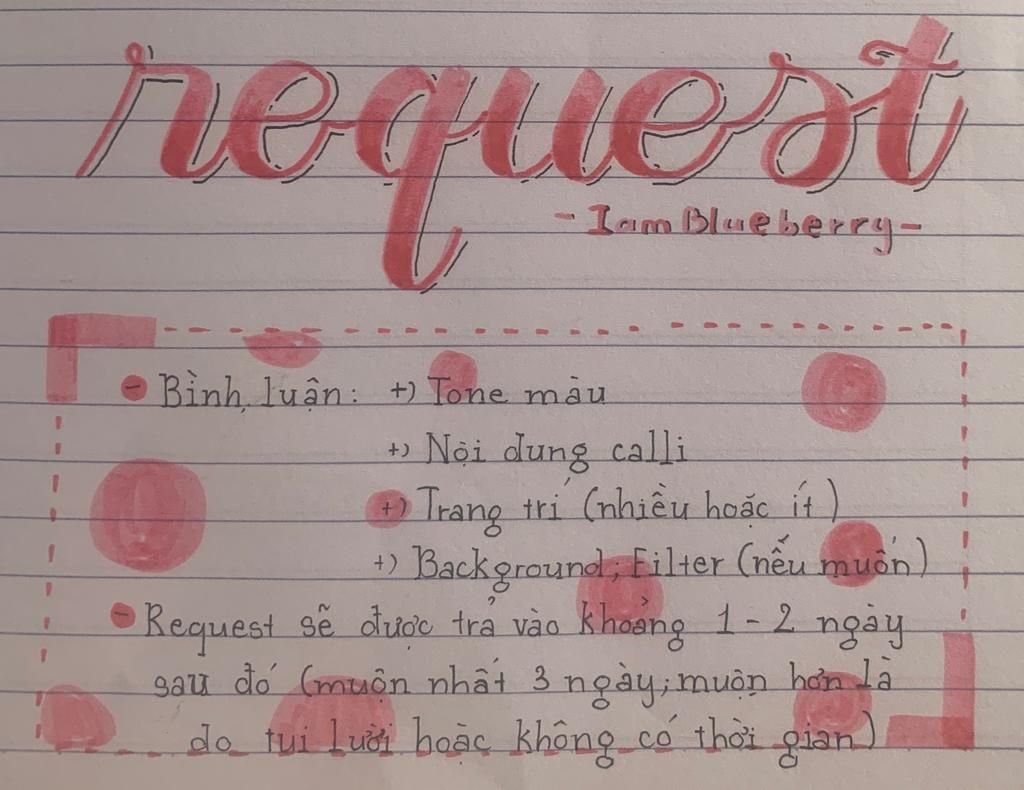 request
- Iam Blueberry -
- Bình luận: +) Tone màu
+) Nội dung calli
+) Trang trí (nhiều hoặc ít)
+) Background; Filter (nếu muốn)
- Request sẽ được trả vào khoảng 1 - 2 ngày
sau đó (muộn nhất 3 ngày; muộn hơn là
do tui lười hoặc không có thời gian)